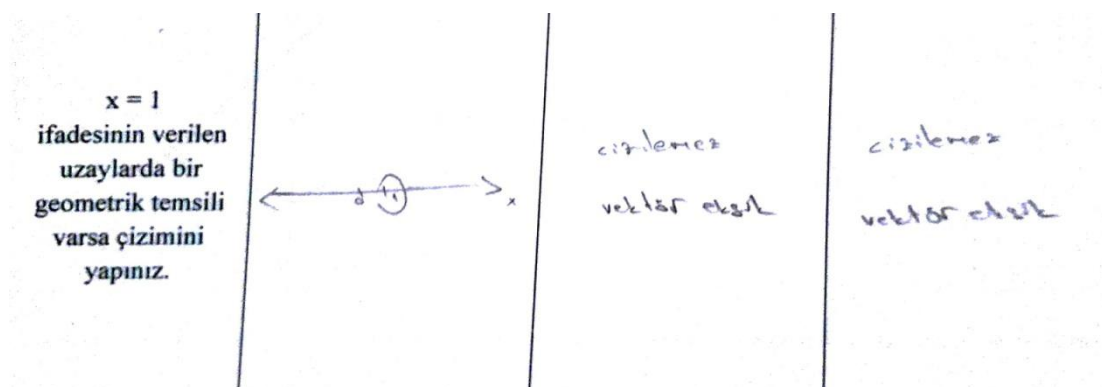 x = 1
ifadesinin verilen
uzaylarda bir
geometrik temsili
varsa çizimini
yapınız.
0 1
x
çizilemez
vektör eksik
çizilemez
vektör eksik